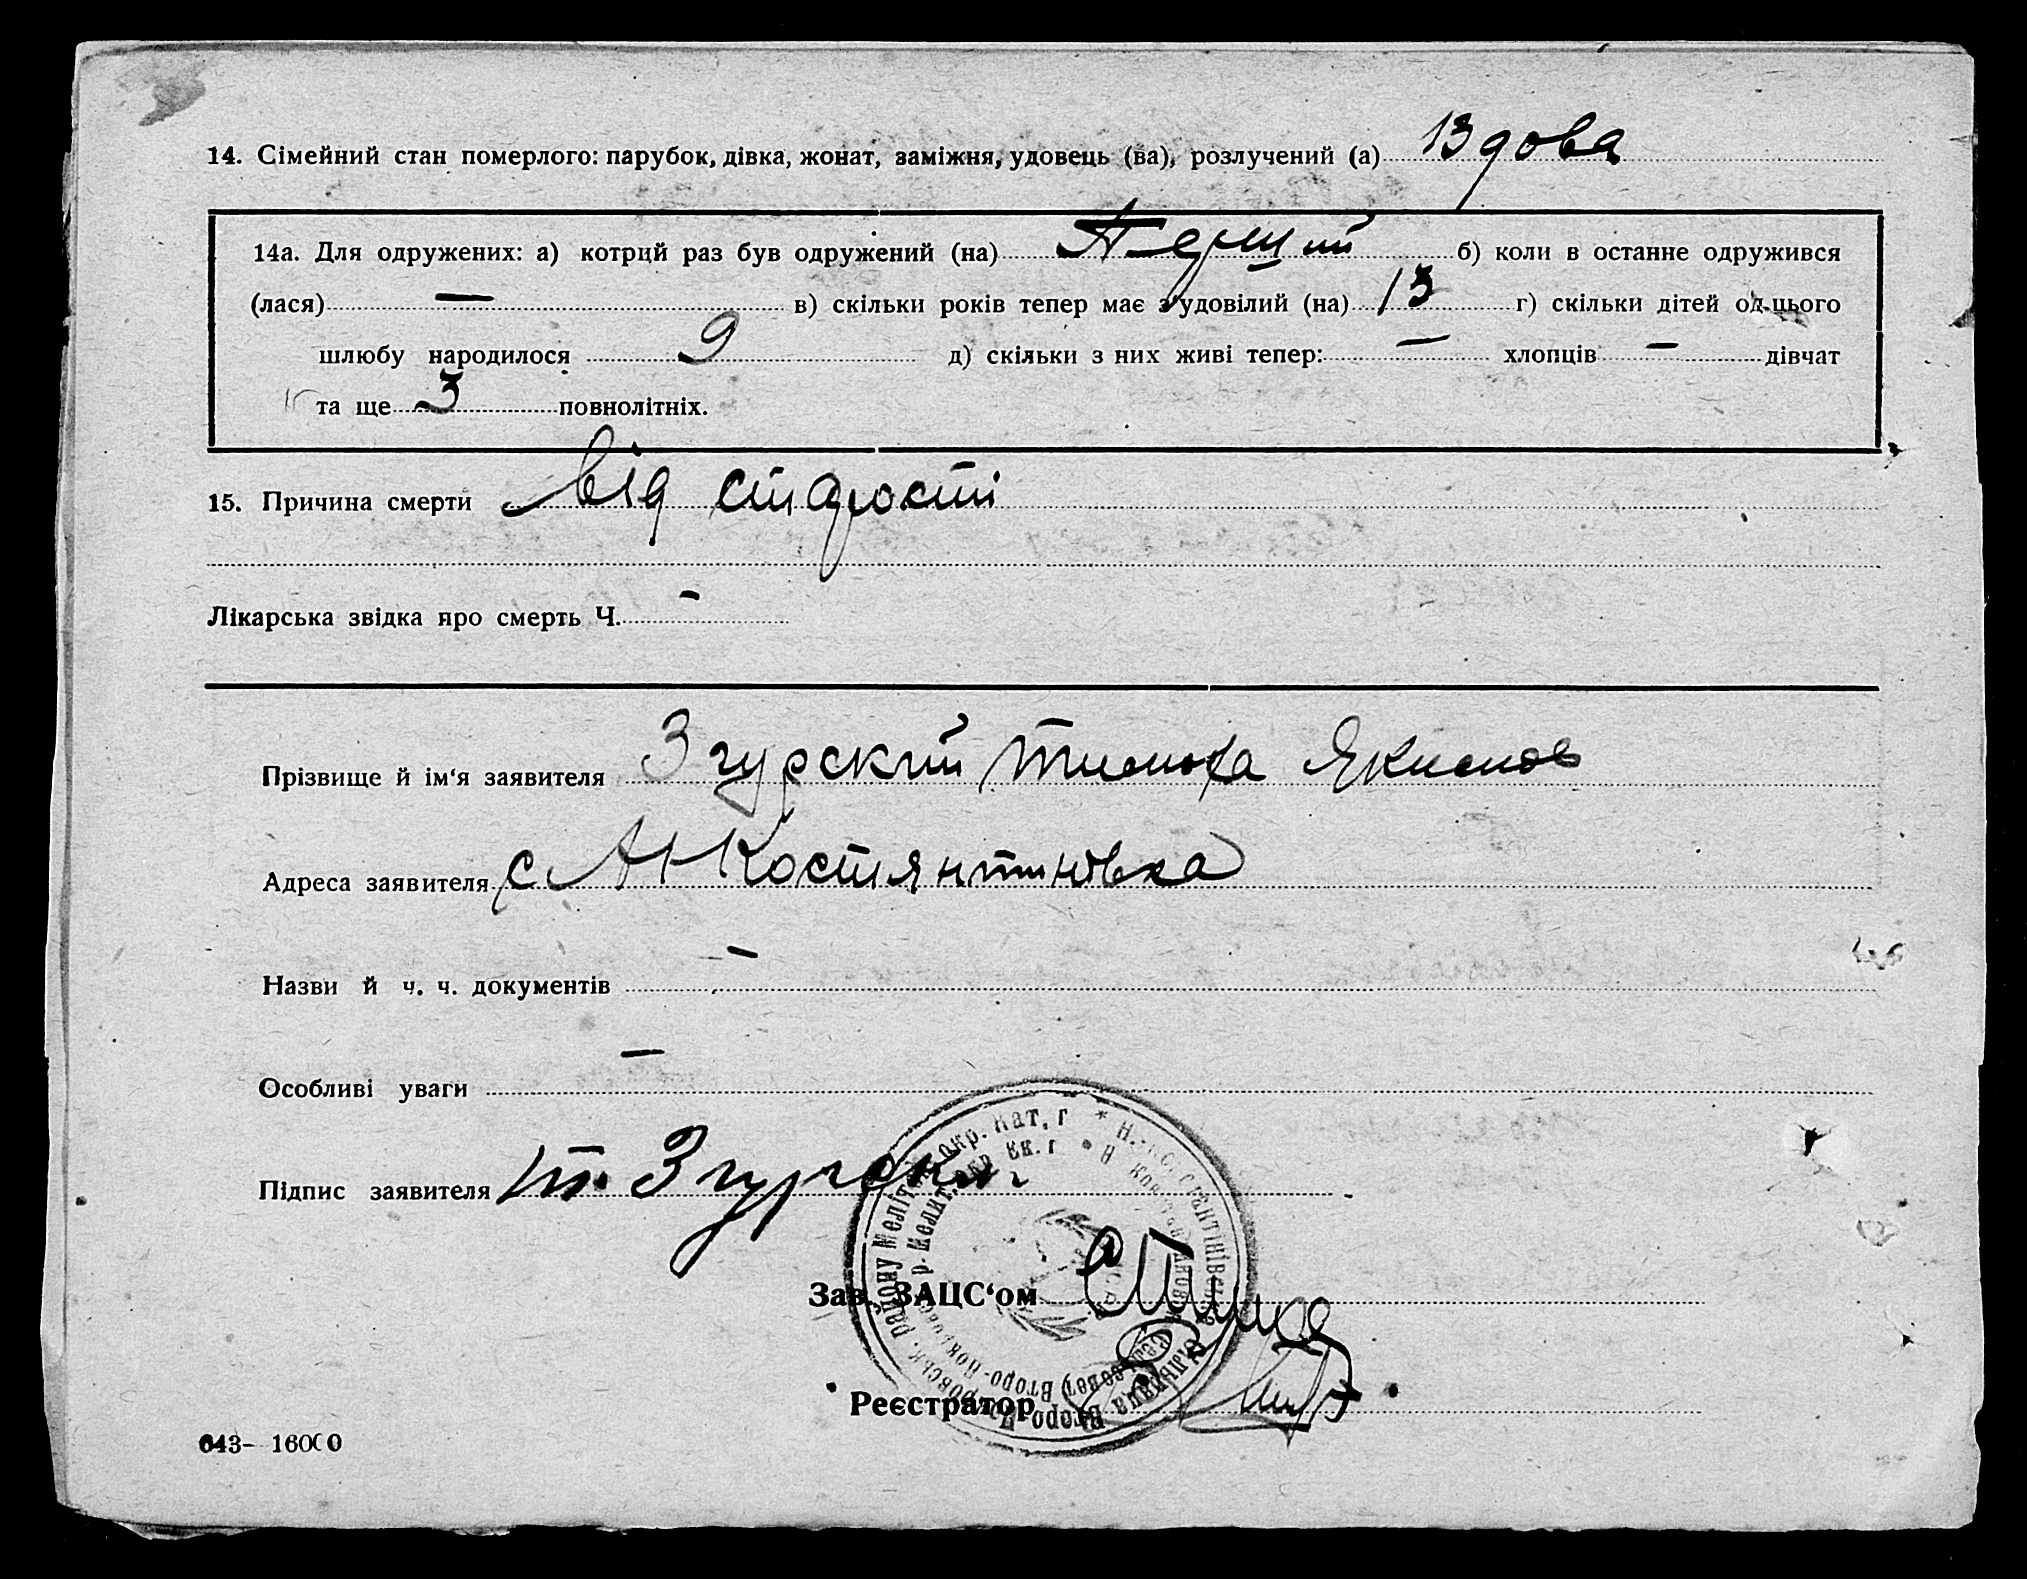 14. Сімейний стан померлого: парубок, дівка, жонат, заміжня, удовець (ва), розлучений (а) Вдова
14а. Для одружених: а) котрий раз був одружений (на) Перший б) коли в останне одружився
(лася) — в) скільки років тепер має з'удовілий (на) 13 г) скільки дітей од цього
шлюбу народилося 9 д) скільки з них живі тепер: — хлопців — дівчат
та ще 3 повнолітніх.
15. Причина смерти від старості
Лікарська звідка про смерть Ч. —
Прізвище й ім'я заявителя Згурский Тимоха Якимов
Адреса заявителя с Н Костянтинівка
Назви й ч. ч. документів —
Особливі уваги —
Підпис заявителя Т. Згурский
Зав. ЗАЦС'ом
Реєстратор
643- 16000